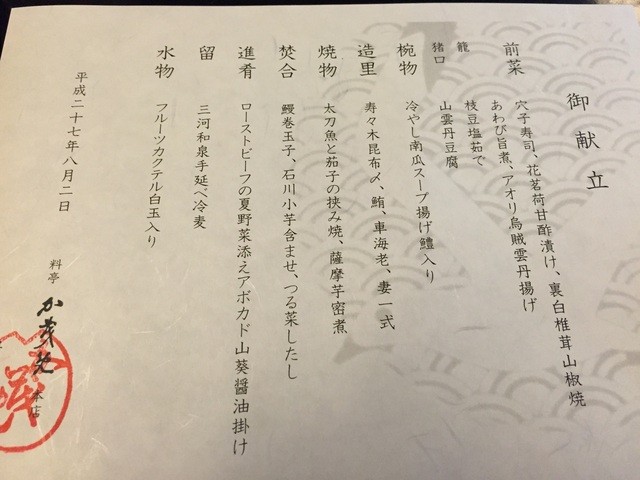 御献立
前菜　穴子寿司、花茗荷甘酢漬け、裏白椎茸山椒焼
あわび旨煮、アオリ烏賊雲丹揚げ
籠　枝豆塩茹で
猪口　山雲丹豆腐
椀物　冷やし南瓜スープ揚げ鱧入り
造里　寿々木昆布〆、鮪、車海老、妻一式
焼物　太刀魚と茄子の挟み焼、薩摩芋密煮
焚合　鰻巻玉子、石川小芋含ませ、つる菜したし
進肴　ローストビーフの夏野菜添えアボカド山葵醤油掛け
留　三河和泉手延べ冷麦
水物　フルーツカクテル白玉入り
平成二十七年八月二日
料亭 加茂免 本店